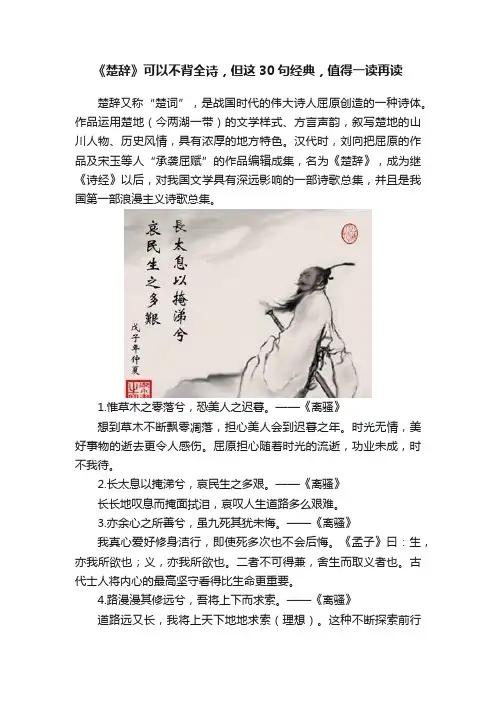 《楚辞》可以不背全诗，但这30句经典，值得一读再读
楚辞又称“楚词”，是战国时代的伟大诗人屈原创造的一种诗体。
作品运用楚地（今两湖一带）的文学样式、方言声韵，叙写楚地的山
川人物、历史风情，具有浓厚的地方特色。汉代时，刘向把屈原的作
品及宋玉等人“承袭屈赋”的作品编辑成集，名为《楚辞》，成为继
《诗经》以后，对我国文学具有深远影响的一部诗歌总集，并且是我
国第一部浪漫主义诗歌总集。
長太息以掩涕兮
哀民生之多艱
戊子年仲夏
1.惟草木之零落兮，恐美人之迟暮。——《离骚》
想到草木不断飘零凋落，担心美人会到迟暮之年。时光无情，美
好事物的逝去更令人感伤。屈原担心随着时光的流逝，功业未成，时
不我待。
2.长太息以掩涕兮，哀民生之多艰。——《离骚》
长长地叹息而掩面拭泪，哀叹人生道路多么艰难。
3.亦余心之所善兮，虽九死其犹未悔。——《离骚》
我真心爱好修身洁行，即使死多次也不会后悔。《孟子》曰：生，
亦我所欲也；义，亦我所欲也。二者不可得兼，舍生而取义者也。古
代士人将内心的最高坚守看得比生命更重要。
4.路漫漫其修远兮，吾将上下而求索。——《离骚》
道路远又长，我将上天下地地求索（理想）。这种不断探索前行